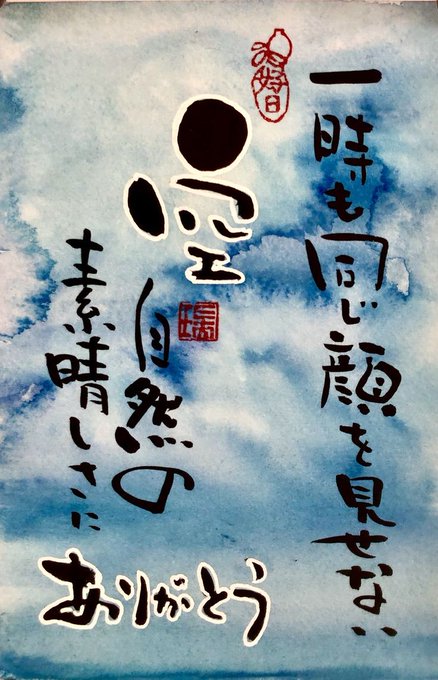 一時も同じ顔を見せない
空
自然の
素晴しさに
ありがとう